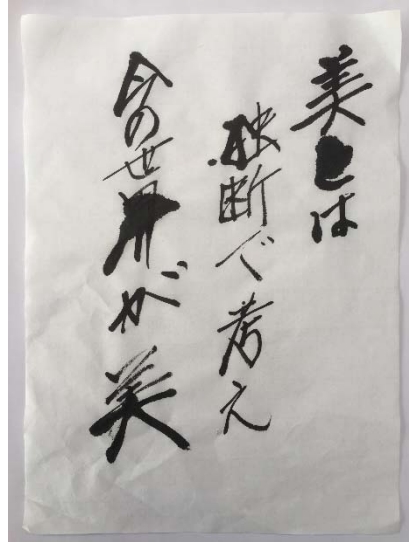 美とは
独断で考え
今の世界が美